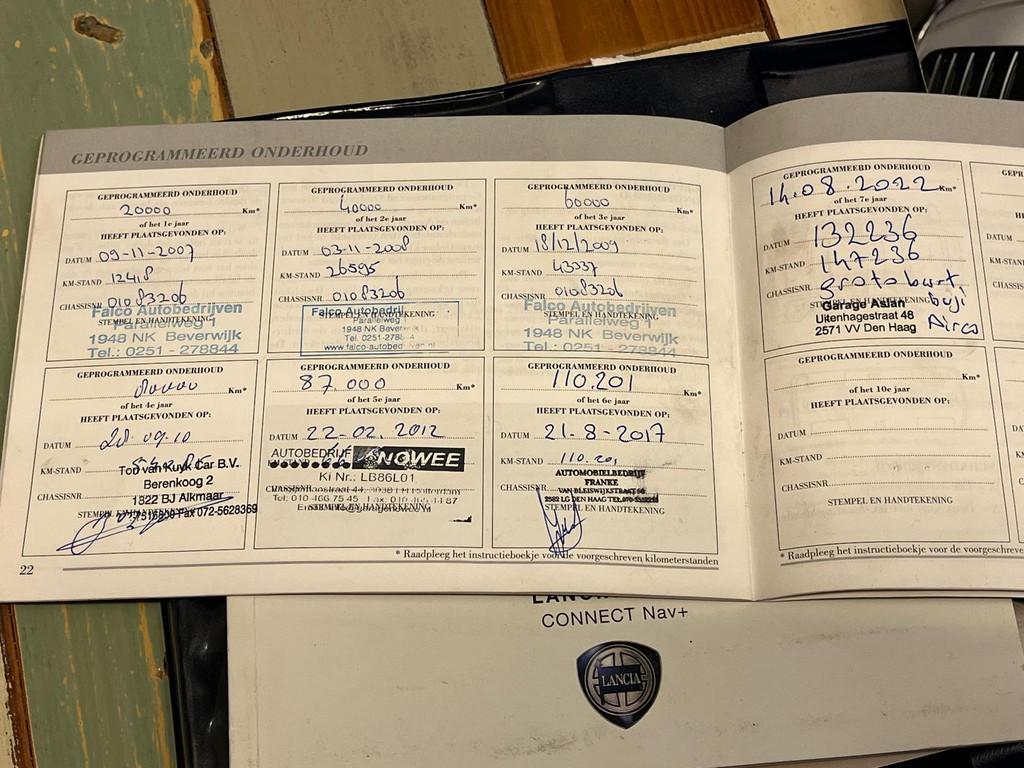 GEPROGRAMMEERD ONDERHOUD
GEPROGRAMMEERD ONDERHOUD
20000 Km*
of het 1e jaar
HEEFT PLAATSGEVONDEN OP:
DATUM 09-11-2007
KM-STAND 12418
CHASSISNR 01083206
Falco Autobedrijven
STEMPEL EN HANDTEKENING
Parallelweg 1
1948 NK Beverwijk
Tel.: 0251 - 278844
GEPROGRAMMEERD ONDERHOUD
40000 Km*
of het 2e jaar
HEEFT PLAATSGEVONDEN OP:
DATUM 03-11-2008
KM-STAND 26595
CHASSISNR 01083206
Falco Autobedrij
STEMPEL EN HANDTEKENING
Parallelweg
1948 NK Beverwijk
Tel. 0251-2788
www.falco-autobedrijven.nl
GEPROGRAMMEERD ONDERHOUD
60000 Km*
of het 3e jaar
HEEFT PLAATSGEVONDEN OP:
DATUM 18/12/2009
KM-STAND 43337
CHASSISNR 01083206
Falco Autobedrijven
STEMPEL EN HANDTEKENING
Parallelweg 1
1948 NK Beverwijk
Tel.: 0251 - 278844
GEPROGRAMMEERD ONDERHOUD
80000 Km*
of het 4e jaar
HEEFT PLAATSGEVONDEN OP:
DATUM 28-09-10
KM-STAND
Ton van Kuyk Car B.V.
Berenkoog 2
CHASSISNR
1822 BJ Alkmaar
STEMPEL EN HANDTEKENING
Fax 072-5628369
GEPROGRAMMEERD ONDERHOUD
87.000 Km*
of het 5e jaar
HEEFT PLAATSGEVONDEN OP:
DATUM 22-02-2012
AUTOBEDRIJF
KM-STAND
NOWEE
Ki Nr.: LB86L01
CHASSISNR
STEMPEL EN HANDTEKENING
GEPROGRAMMEERD ONDERHOUD
110.201 Km*
of het 6e jaar
HEEFT PLAATSGEVONDEN OP:
DATUM 21-8-2017
KM-STAND 110.201
AUTOMOBIELBEDRIJF
FRANKE
CHASSISNR
VAN BLEISWIJKSTRAAT
2582 LG DEN HAAG
STEMPEL EN HANDTEKENING
* Raadpleeg het instructieboekje voor de voorgeschreven kilometerstanden
22
GEPROGRAMMEERD ONDERHOUD
14.08.2022 Km*
of het 7e jaar
HEEFT PLAATSGEVONDEN OP:
DATUM 132236
KM-STAND 147236
CHASSISNR. grote burt
STEMPEL EN HANDTEKENING
buji
Airco
Garage Aslan
Uitenhagestraat 46
2571 VV Den Haag
GEPROGRAMMEERD ONDERHOUD
Km*
of het 10e jaar
HEEFT PLAATSGEVONDEN OP:
DATUM
KM-STAND
CHASSISNR
STEMPEL EN HANDTEKENING
* Raadpleeg het instructieboekje voor de voorgeschreve
GEPR
DATUM
KM-STAND
CHASSISN
DATUM
KM-STAND
CHASSISN
CONNECT Nav+
LANCIA